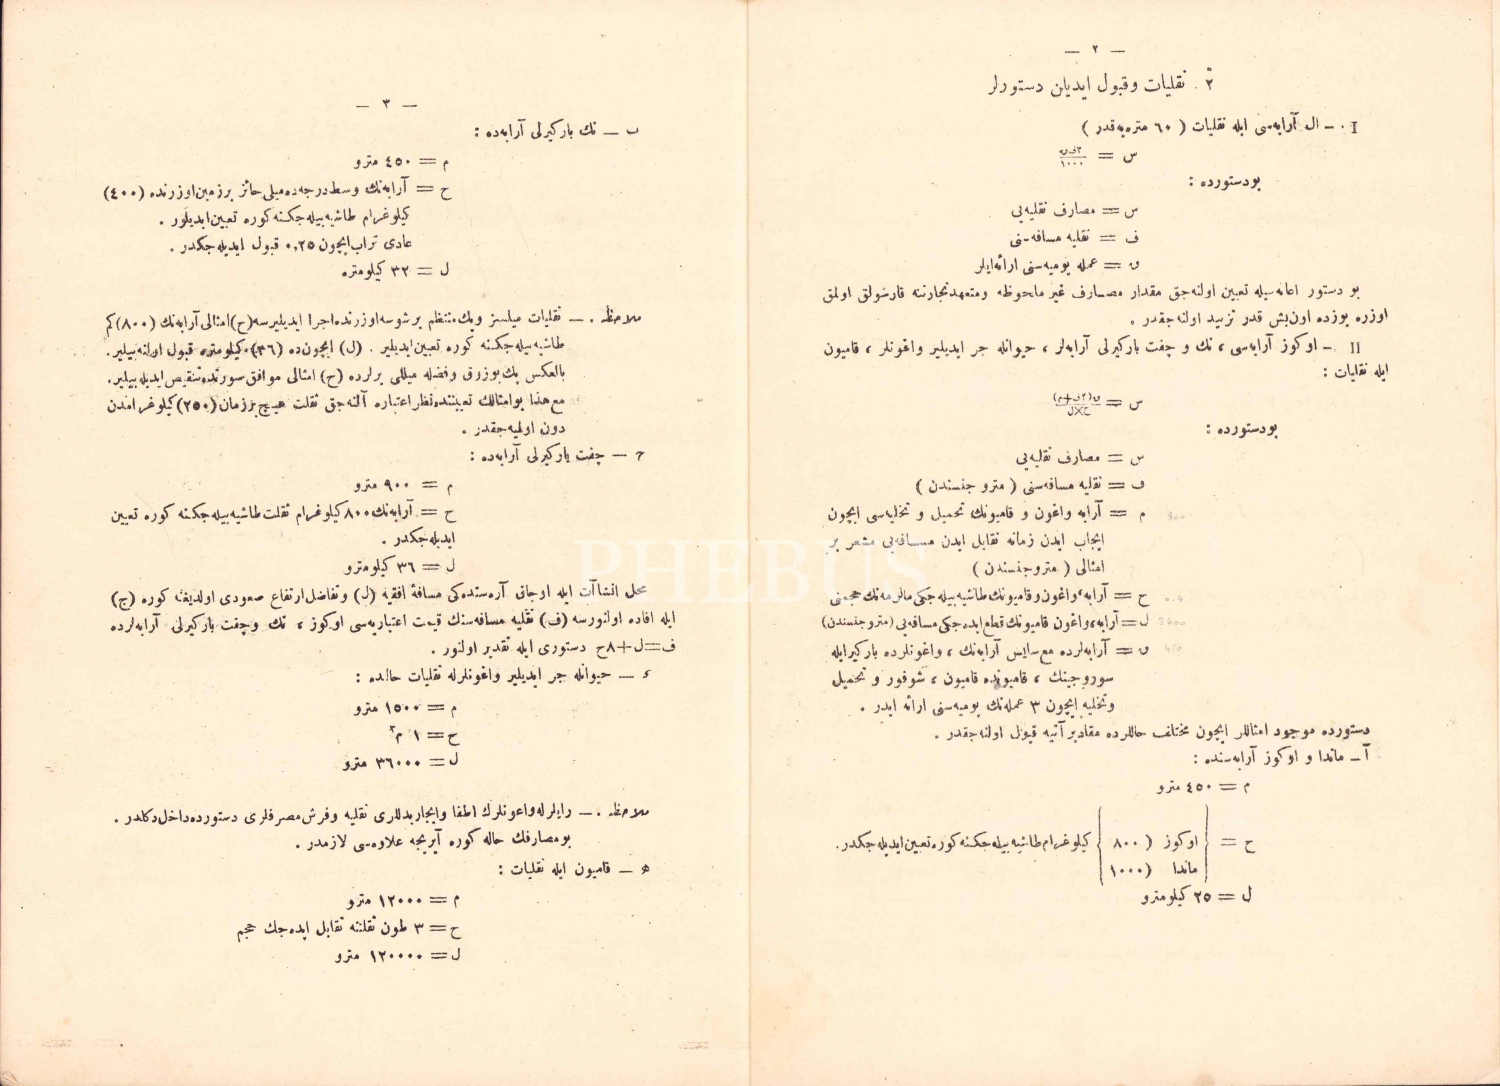 — ٢ —
٢ . نقلیات وقبول ایدیلن دستورلر
I . – ال آرابه‌سی ایله نقلیات ( ٦٠ متره‌یه قدر )
س = ٢ف‌ق / ١٠٠٠
بودستورده :
س = مصارف نقلیه‌یی
ف = نقلیه مسافه‌سنی
ق = عمله یومیه‌سنی ارائه ایلر
بو دستور اعانه‌سیله تعیین اولنه‌جق مقدار مصارف غیر ملحوظه ومتعهد تجارتنه قارشولق اولمق
اوزره یوزده اون‌بش قدر تزیید اولنه‌جقدر .
II – اوکوز آرابه‌سی ، تك و چفت بارکیرلی آرابه‌لر ، حیوانله جر ایدیلیر واغونلر ، قامیون
ایله نقلیات :
س = ق(٢ف+م) / ح×ل
بودستورده :
س = مصارف نقلیه‌یی
ف = نقلیه مسافه‌سنی ( مترو جنسندن )
م = آرابه واغون و قامیونك تحمیل و تخلیه‌سی ایچون
ایجاب ایدن زمانه تقابل ایدن مسافه‌یی مشعر بر
امثالی ( مترو جنسندن )
ح = آرابه ، واغون و قامیونك طاشیه‌بیله‌جکی مالزمه‌نك حجمنی
ل = آرابه ، واغون قامیونك قطع ایده‌جکی مسافه‌یی (مترو جنسندن)
ق = آرابه‌لرده مع سایس آرابه‌نك ، واغونلرده بارکیرایله
سوروجینك ، قامیونده قامیون ، شوفور و تحمیل
وتخلیه ایچون ٣ عمله‌نك یومیه‌سنی ارائه ایدر .
دستورده موجود امثاللر ایچون مختلف حاللرده مقادیر آتیه قبول اولنه‌جقدر .
آ – ماندا و اوکوز آرابه‌سنده :
م = ٤٥٠ مترو
ح = { اوکوز ( ٨٠٠ } کیلوغرام طاشیه‌بیله‌جکنه کوره تعیین ایدیله‌جکدر.
ماندا (١٠٠٠
ل = ٢٥ کیلومترو
— ٣ —
ب — تك بارکیرلی آرابه‌ده :
م = ٤٥٠ مترو
ح = آرابه‌نك وسط درجه‌ده میلی حائز بر زمین اوزرنده (٤٠٠)
کیلوغرام طاشیه‌بیله‌جکنه کوره تعیین ایدیلور .
عادی تراب ایچون ٠,٢٥ قبول ایدیله‌جکدر .
ل = ٣٢ کیلومتره
ملاحظه . — نقلیات میلسز وپك منتظم بر شوسه اوزرنده اجرا ایدیلیرسه (ح) امثالی آرابه‌نك (٨٠٠) کم
طاشیه‌بیله‌جکنه کوره تعیین ایدیلیر . (ل) ایچون‌ده (٣٦) کیلومتره قبول اولنه‌بیلیر.
بالعکس پك بوزوق وفضله میللی یرلرده (ح) امثالی موافق صورتده تنقیص ایدیله‌بیلیر.
مع هذا بوامثالك تعییننده نظر اعتباره آلنه‌جق ثقلت هیچ بر زمان (٢٥٠) کیلوغرامدن
دون اولمیه‌جقدر .
ج — چفت بارکیرلی آرابه‌ده :
م = ٩٠٠ مترو
ح = آرابه‌نك ٨٠٠ کیلوغرام ثقلت طاشیه‌بیله‌جکنه کوره تعیین
ایدیله‌جکدر .
ل = ٣٦ کیلومترو
محل انشاآت ایله اوجاق آره‌سنده‌کی مسافهٔ افقیه (ل) وتفاضل ارتفاع صعودی اولدیغنه کوره (ح)
ایله افاده اولنورسه (ف) نقلیه مسافه‌سنك قیمت اعتباریه‌سی اوکوز ، تك وچفت بارکیرلی آرابه‌لرده
ف=ل+٨ح دستوری ایله تقدیر اولنور .
ء — حیوانله جر ایدیلیر واغونلرله نقلیات حالده :
م = ١٥٠٠ مترو
ح = ١ م٣
ل = ٣٦٠٠٠ مترو
ملاحظه . — رایلرله واغونلرك اطفا وایجار بدللری نقلیه وفرش مصرفلری دستورده داخل دکلدر .
بو مصارفك حاله کوره آیریجه علاوه‌سی لازمدر .
ه — قامیون ایله نقلیات :
م = ١٢٠٠٠ مترو
ح = ٣ طون ثقلتنه تقابل ایده‌جك حجم
ل = ١٢٠٠٠٠ مترو
PHEBUS